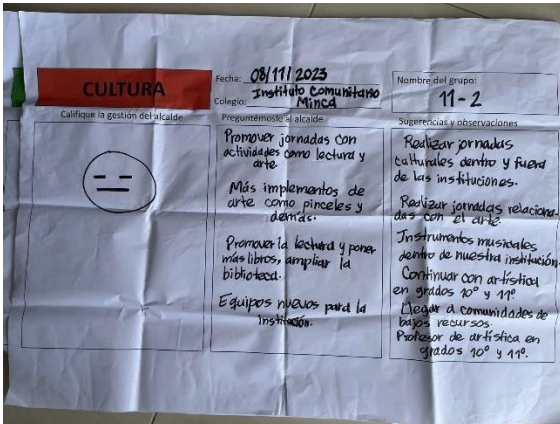 CULTURA
Fecha: 08/11/2023
Colegio: Instituto Comunitario
Minca
Nombre del grupo:
11-2
Califique la gestión del alcalde
Preguntémosle al alcalde
Promover jornadas con
actividades como lectura y
arte.
Más implementos de
arte como pinceles y
demás.
Promover la lectura y poner
más libros, ampliar la
biblioteca.
Equipos nuevos para la
institución.
Sugerencias y observaciones
Realizar jornadas
culturales dentro y fuera
de las instituciones.
Realizar jornadas relaciona-
das con el arte
Instrumentos musicales
dentro de nuestra institución.
Continuar con artística
en grados 10° y 11°.
Llegar a comunidades de
bajos recursos.
Profesor de artística en
grados 10° y 11°.